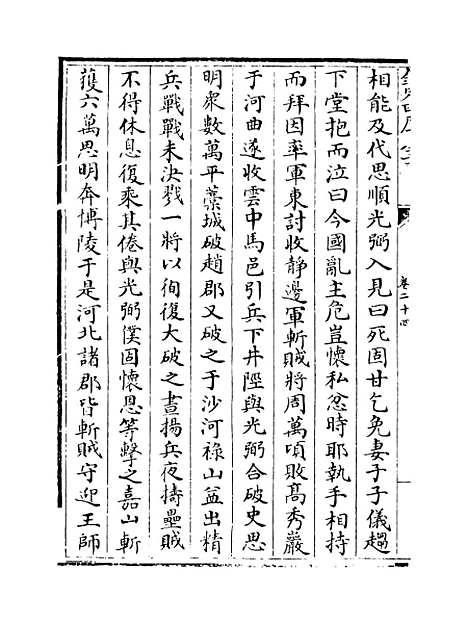 卷二十四
相能及代思順光弼入見曰死固甘乞免妻于子儀趨
下堂抱而泣曰今國亂主危豈懷私忿時耶執手相持
而拜因率軍東討收靜邊軍斬賊將周萬頃敗髙秀巖
于河曲遂收雲中馬邑引兵下井陘與光弼合破史思
明衆數萬平藁城破趙郡又破之于沙河祿山益出精
兵戰戰未決戮一將以徇復大破之晝揚兵夜擣壘賊
不得休息復乘其倦與光弼僕固懷恩等擊之嘉山斬
獲六萬思明奔博陵于是河北諸郡皆斬賊守迎王師